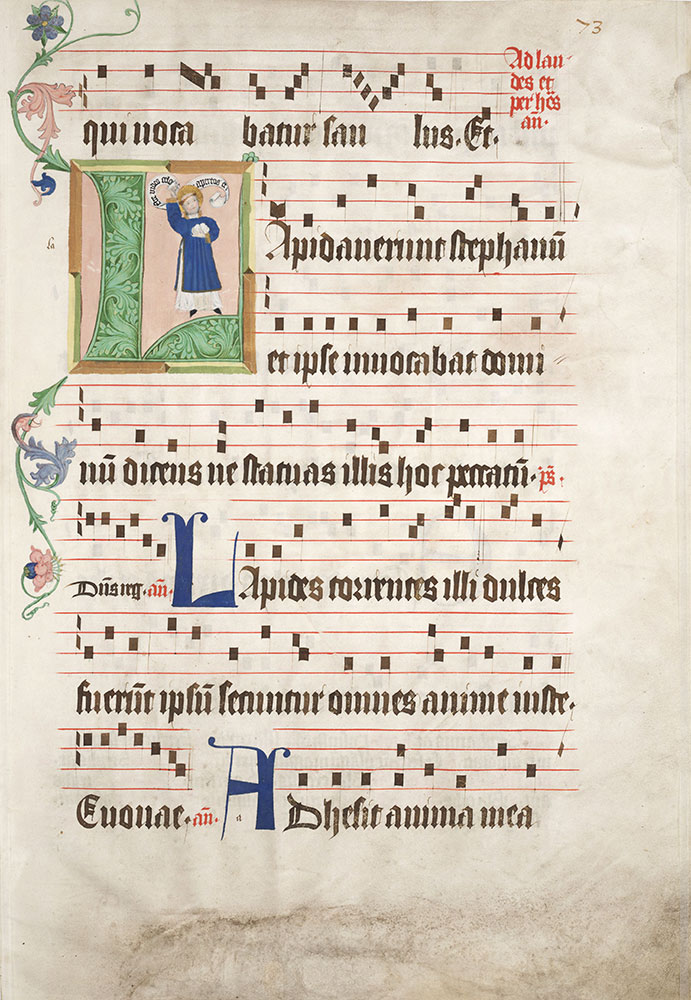 73
Ad lau
des et
per hōs
an.
qui uoca batur sau lus. Et.
la
apertos et
Lapidauerunt stephanū
et ipse inuocabat domi
nū dicens ne statuas illis hoc peccatū. ps.
Dūs reg. an. Lapides torrentes illi dulces
fuerūt ipsū secuntur omnes anime iuste.
Euouae. an. a Adhesit anima mea